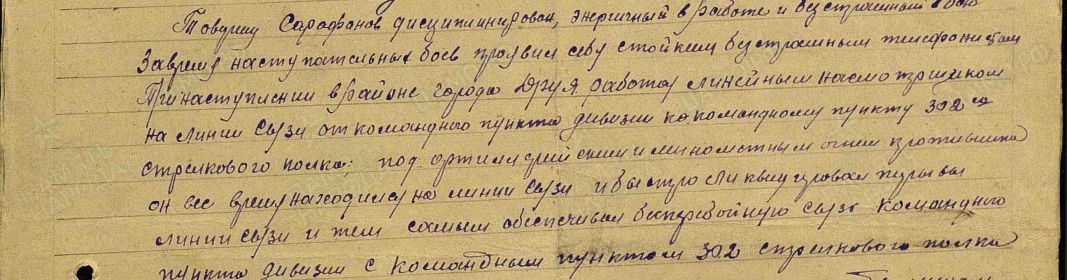 Товарищ Сарафанов дисциплинирован, энергичный в работе и бесстрашный в бою
За время наступательных боев проявил себя стойким бесстрашным телефонистом
При наступлении в районе города Друя работая линейным надсмотрщиком
на линии связи от командного пункта дивизии ко командному пункту 302 го
стрелкового полка; под артиллрийским и минометным огнем противника
он все время находился на линии связи и быстро ликвидировал порывы
линии связи и тем самым обеспечивал бесперебойную связь командного
пункта дивизии с командным пунктом 302 стрелкового полка